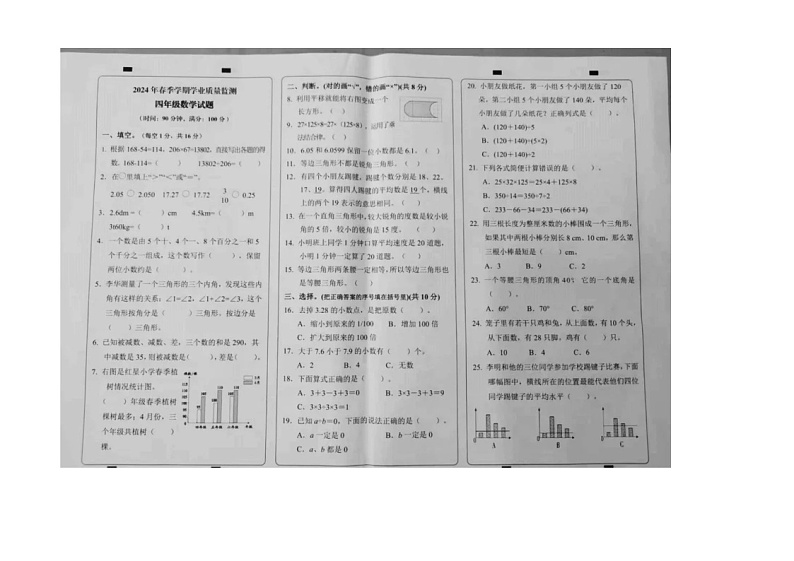 2024 年春季学期学业质量监测
四年级数学试题
(时间：90 分钟，满分：100 分)
一、填空。(每空 1 分，共 16 分)
1. 根据 168-54=114，206×67=13802，直接写出各题的得
数。168-114=（ ） 13802÷206=（ ）
2. 在○里填上“>”“<”或“=”。
2.05 ○ 2.050 17.27 ○ 17.72 3/10 ○ 0.25
3. 2.6dm =（ ）cm 4.5km=（ ）m
3060kg=（ ）t
4. 一个数是由 5 个十、4 个一、8 个百分之一和 5
个千分之一组成，这个数写作（ ），保留
两位小数约是（ ）。
5. 李华测量了一个三角形的三个内角，发现这些内
角有这样的关系：∠1=∠2，∠1+∠2=∠3，这个
三角形按角分是（ ）三角形，按边分是
（ ）三角形。
6. 已知被减数、减数、差，三个数的和是 290，其
中减数是 35，则被减数是（ ），差是（ ）。
7. 右图是红星小学春季植
树情况统计图。
（ ）年级春季植树
棵树最多；4 月份，三
个年级共植树（ ）
棵。
四年级 五年级 六年级
二、判断。(对的画“√”，错的画“×”)(共 8 分)
8. 利用平移就能将右图变成一个
长方形。（ ）
9. 27×125×8=27×（125×8），运用了乘
法结合律。（ ）
10. 6.05 和 6.0599 保留一位小数都是 6.1。（ ）
11. 等边三角形不都是锐角三角形。（ ）
12. 有四个小朋友踢毽，踢毽个数分别是 18、22、
17、19。算得四人踢毽的平均数是 19 个，横线
上的两个 19 表示的意思相同。（ ）
13. 在一个直角三角形中，较大锐角的度数是较小锐
角的 5 倍，较小的锐角是 15 度。（ ）
14. 小明班上同学 1 分钟口算平均速度是 20 道题，
小明 1 分钟一定算了 20 道题。（ ）
15. 等边三角形两条腰一定相等，所以等边三角形也
是等腰三角形。（ ）
三、选择。(把正确答案的序号填在括号里)(共 10 分)
16. 去掉 3.28 的小数点，是把原数（ ）。
A．缩小到原来的 1/100 B．增加 100 倍
C．扩大到原来的 100 倍
17. 大于 7.6 小于 7.9 的小数有（ ）个。
A．2 B．4 C．无数
18. 下面算式正确的是（ ）。
A．3＋3－3＋3＝0 B．3×3－3＋3＝9
C．3×3÷3×3＝1
19. 已知 a×b＝0，下面的说法正确的是（ ）。
A．a 一定是 0 B．b 一定是 0
C．a、b 都是 0
20. 小朋友做纸花，第一小组 5 个小朋友做了 120
朵，第二小组 5 个小朋友做了 140 朵，平均每个
小朋友做了几朵纸花？正确列式是（ ）。
A．(120＋140)÷5
B．(120＋140)÷(5×2)
C．(120＋140)÷2
21. 下列各式简便计算错误的是（ ）。
A．25×32×125＝25×4＋125×8
B．350÷14＝350÷7÷2
C．233－66－34＝233－(66＋34)
22. 用三根长度为整厘米数的小棒围成一个三角形，
如果其中两根小棒分别长 8 cm、10 cm，那么第
三根小棒最短是（ ）cm。
A．3 B．9 C．2
23. 一个等腰三角形的顶角 40° 它的一个底角是
（ ）。
A．60° B．70° C．80°
24. 笼子里有若干只鸡和兔，从上面数，有 10 个头，
从下面数，有 28 只脚。鸡有（ ）只。
A．10 B．4 C．6
25. 李明和他的三位同学参加学校踢毽子比赛，下面
哪幅图中，横线所在的位置最能代表他们四位
同学踢毽子的平均水平（ ）。
A B C